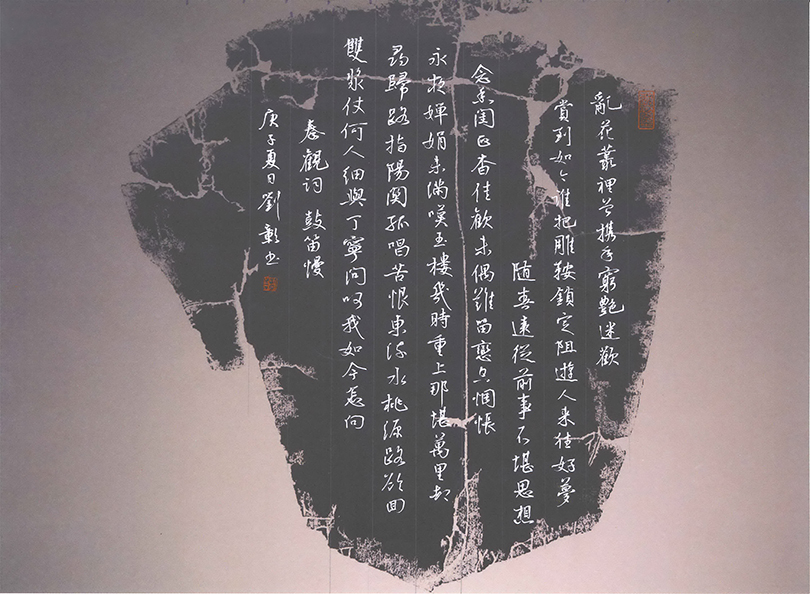 亂花叢裡曾携手窮艷迷歡
賞到如今誰把雕鞍鎖定阻遊人来往好夢
随春遠從前事不堪思想
念香闺正杳佳歡未偶難留戀空惆悵
永夜嬋娟未滿嘆玉樓幾時重上那堪萬里却
尋歸路指陽関孤唱苦恨東流水桃源路欲回
雙槳仗何人細與丁寧問呵我如今怎向
秦觀詞 鼓笛慢
庚子夏日劉彰书